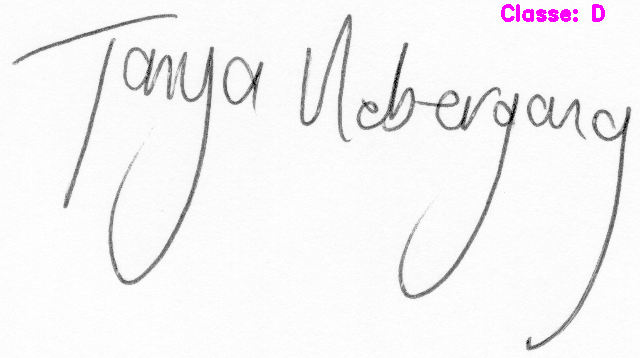 Classe: D
Tanya Nebergang